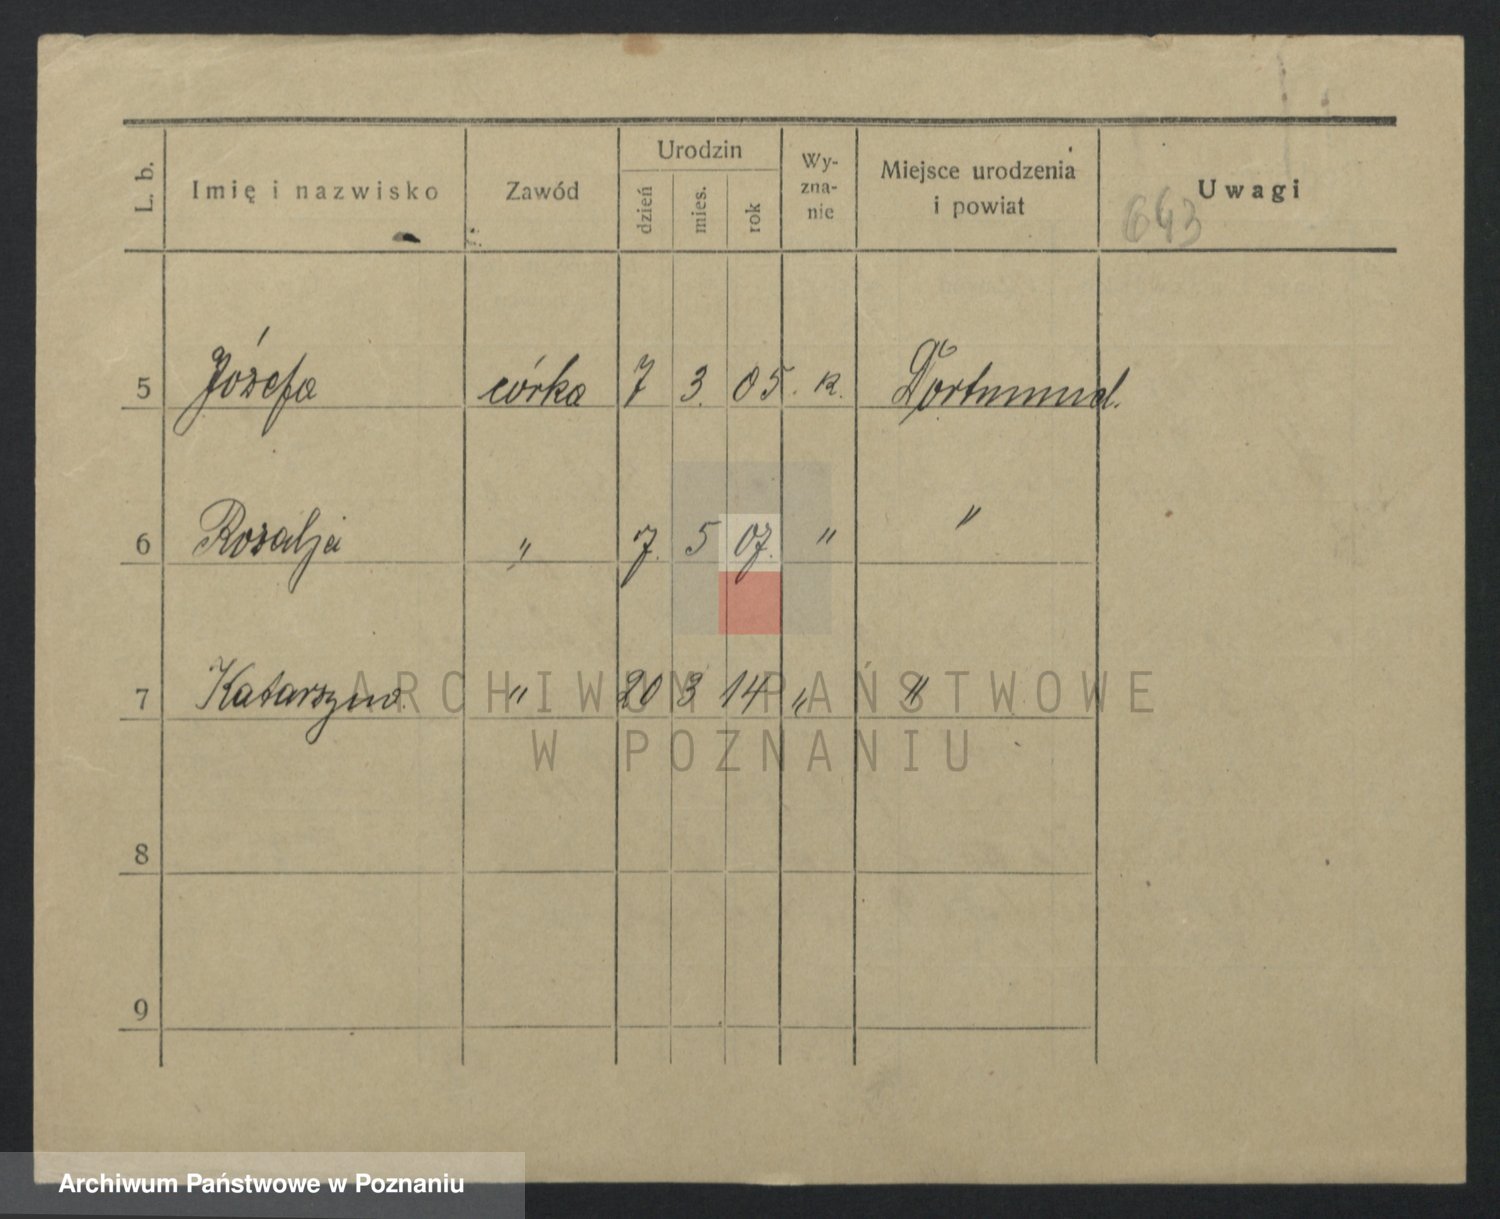 L. b. Imię i nazwisko Zawód Urodzin dzień mies. rok Wy-zna-nie Miejsce urodzenia i powiat Uwagi
643
5 Józefa córka 7 3. 05. k. Dortmund.
6 Rozalja " 7. 5 07. " "
7 Katarzyna " 20 3 14 " "
8
9
ARCHIWUM PAŃSTWOWE
W POZNANIU
Archiwum Państwowe w Poznaniu